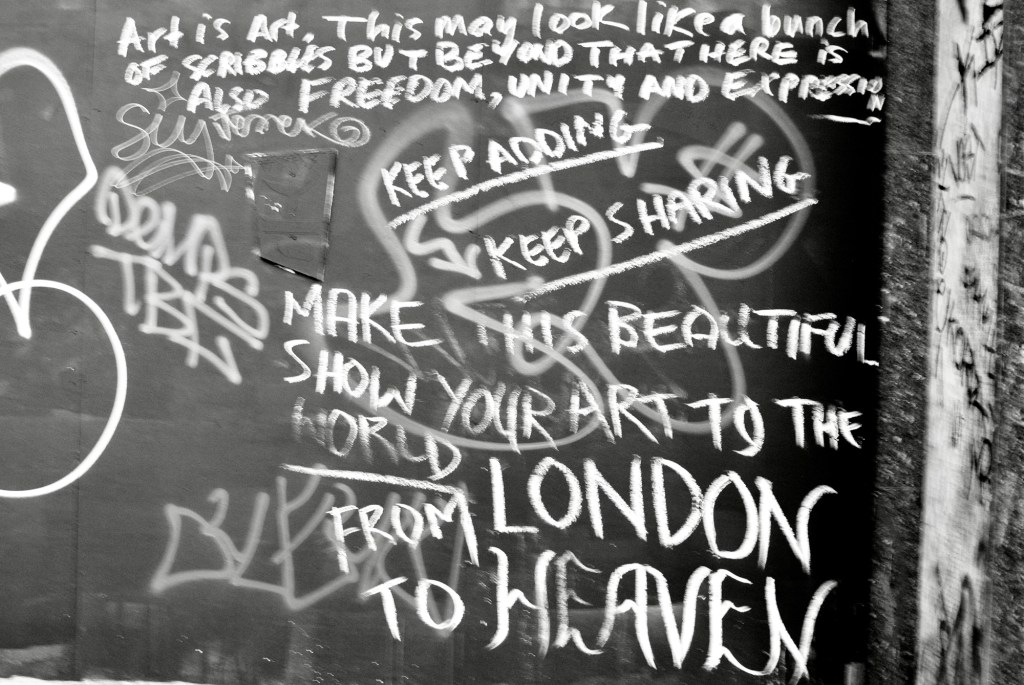 Art is Art. This may look like a bunch
OF SCRIBBLES BUT BEYOND THAT THERE IS
ALSO FREEDOM, UNITY AND EXPRESSION
KEEP ADDING
KEEP SHARING
MAKE THIS BEAUTIFUL
SHOW YOUR ART TO THE
WORLD
FROM LONDON
TO HEAVEN